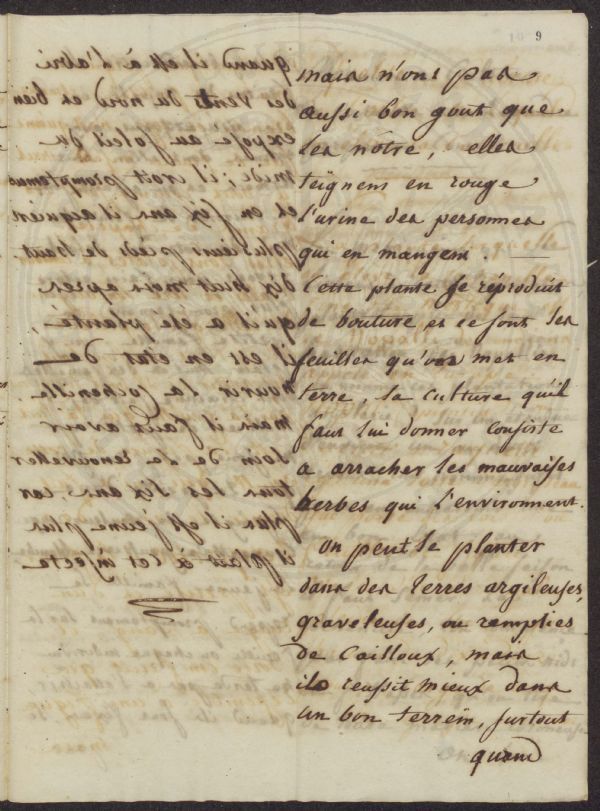 9
mais n'ont pas
aussi bon gout que
les nôtre, elles
teignent en rouge
l'urine des personnes
qui en mangent.
Cette plante se réproduit
de bouture et ce sont les
feuilles qu'on met en
terre, la culture qu'il
faut lui donner consiste
a arracher les mauvaises
herbes qui l'environnent.
on peut le planter
dans des terres argileuses,
graveleuses, ou ramplies
de Cailloux, mais
il reussit mieux dans
un bon terrein, surtout
quand